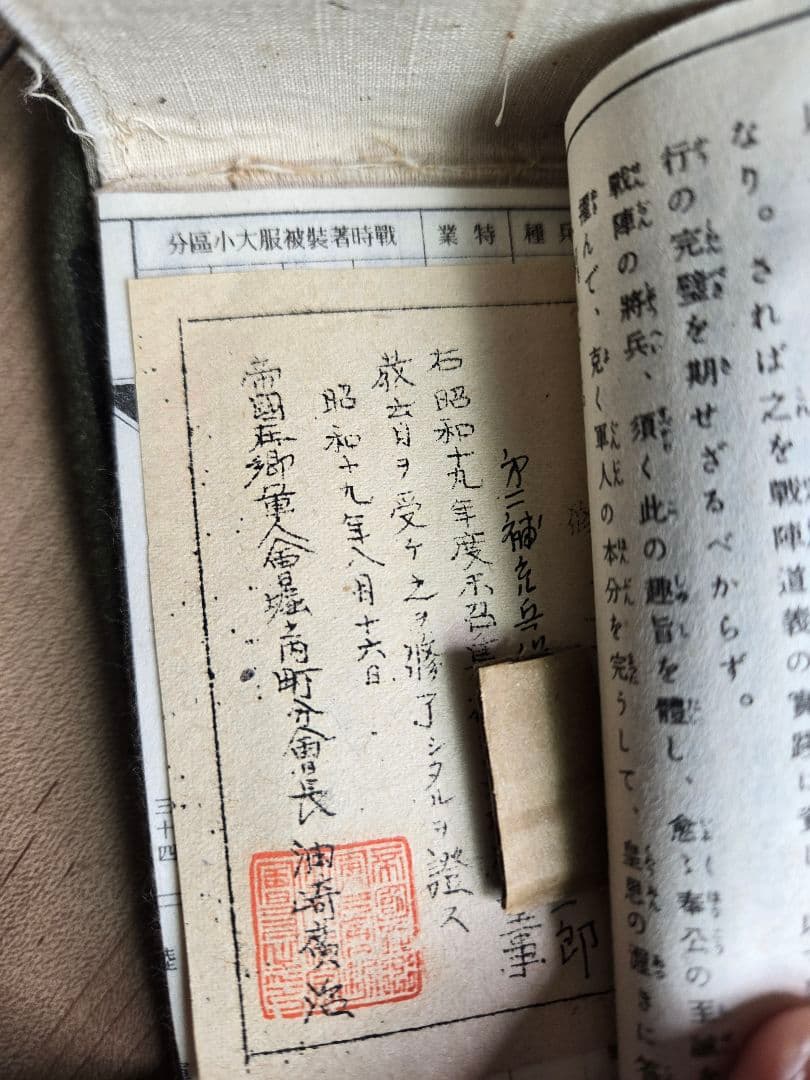 なり。されば之を戰陣道義の實踐に
行の完璧を期せざるべからず。
戰陣の將兵、須く此の趣旨を體し、愈〻奉公の至誠を
んで、克く軍人の本分を完うして、皇恩の渥きに
兵種
特業
戰時著裝被服大小區分
第二補充兵
一郎
右昭和十九年度未召集
教育ヲ受ケ之ヲ修了シタルヲ證ス
昭和十九年八月十六日
帝國在鄕軍人會堀之內町分會長 油崎廣治
三十四
陸